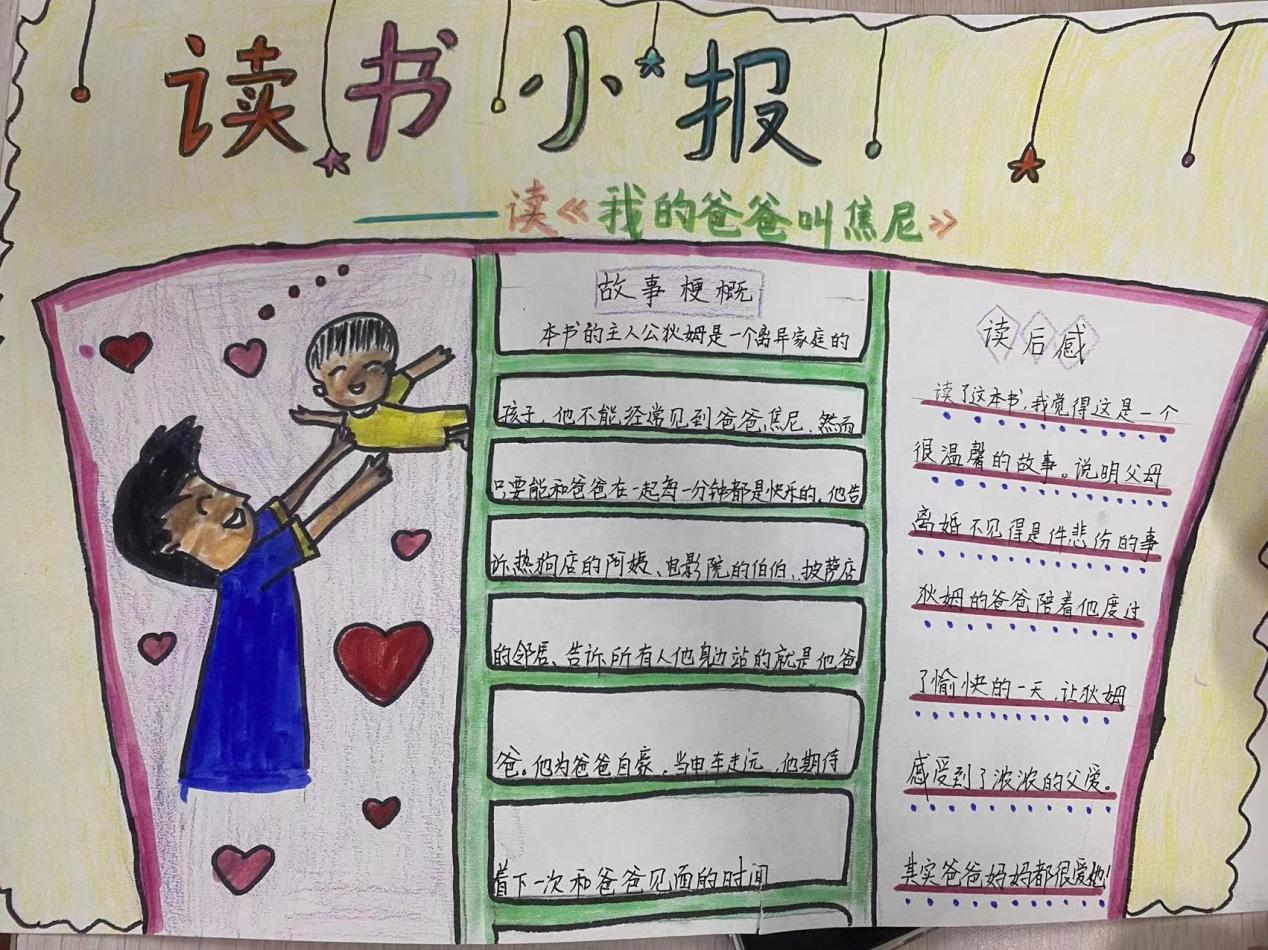 读书小报
——读《我的爸爸叫焦尼》
故事梗概
本书的主人公狄姆是一个离异家庭的
孩子,他不能经常见到爸爸焦尼.然而
只要能和爸爸在一起每一分钟都是快乐的,他告
诉热狗店的阿姨、电影院的伯伯、披萨店
的邻居、告诉所有人他身边站的就是他爸
爸。他为爸爸自豪,当电车走远,他期待
着下一次和爸爸见面的时间
读后感
读了这本书,我觉得这是一个
很温馨的故事。说明父母
离婚不见得是件悲伤的事
狄姆的爸爸陪着他度过
了愉快的一天,让狄姆
感受到了浓浓的父爱。
其实爸爸妈妈都很爱他!